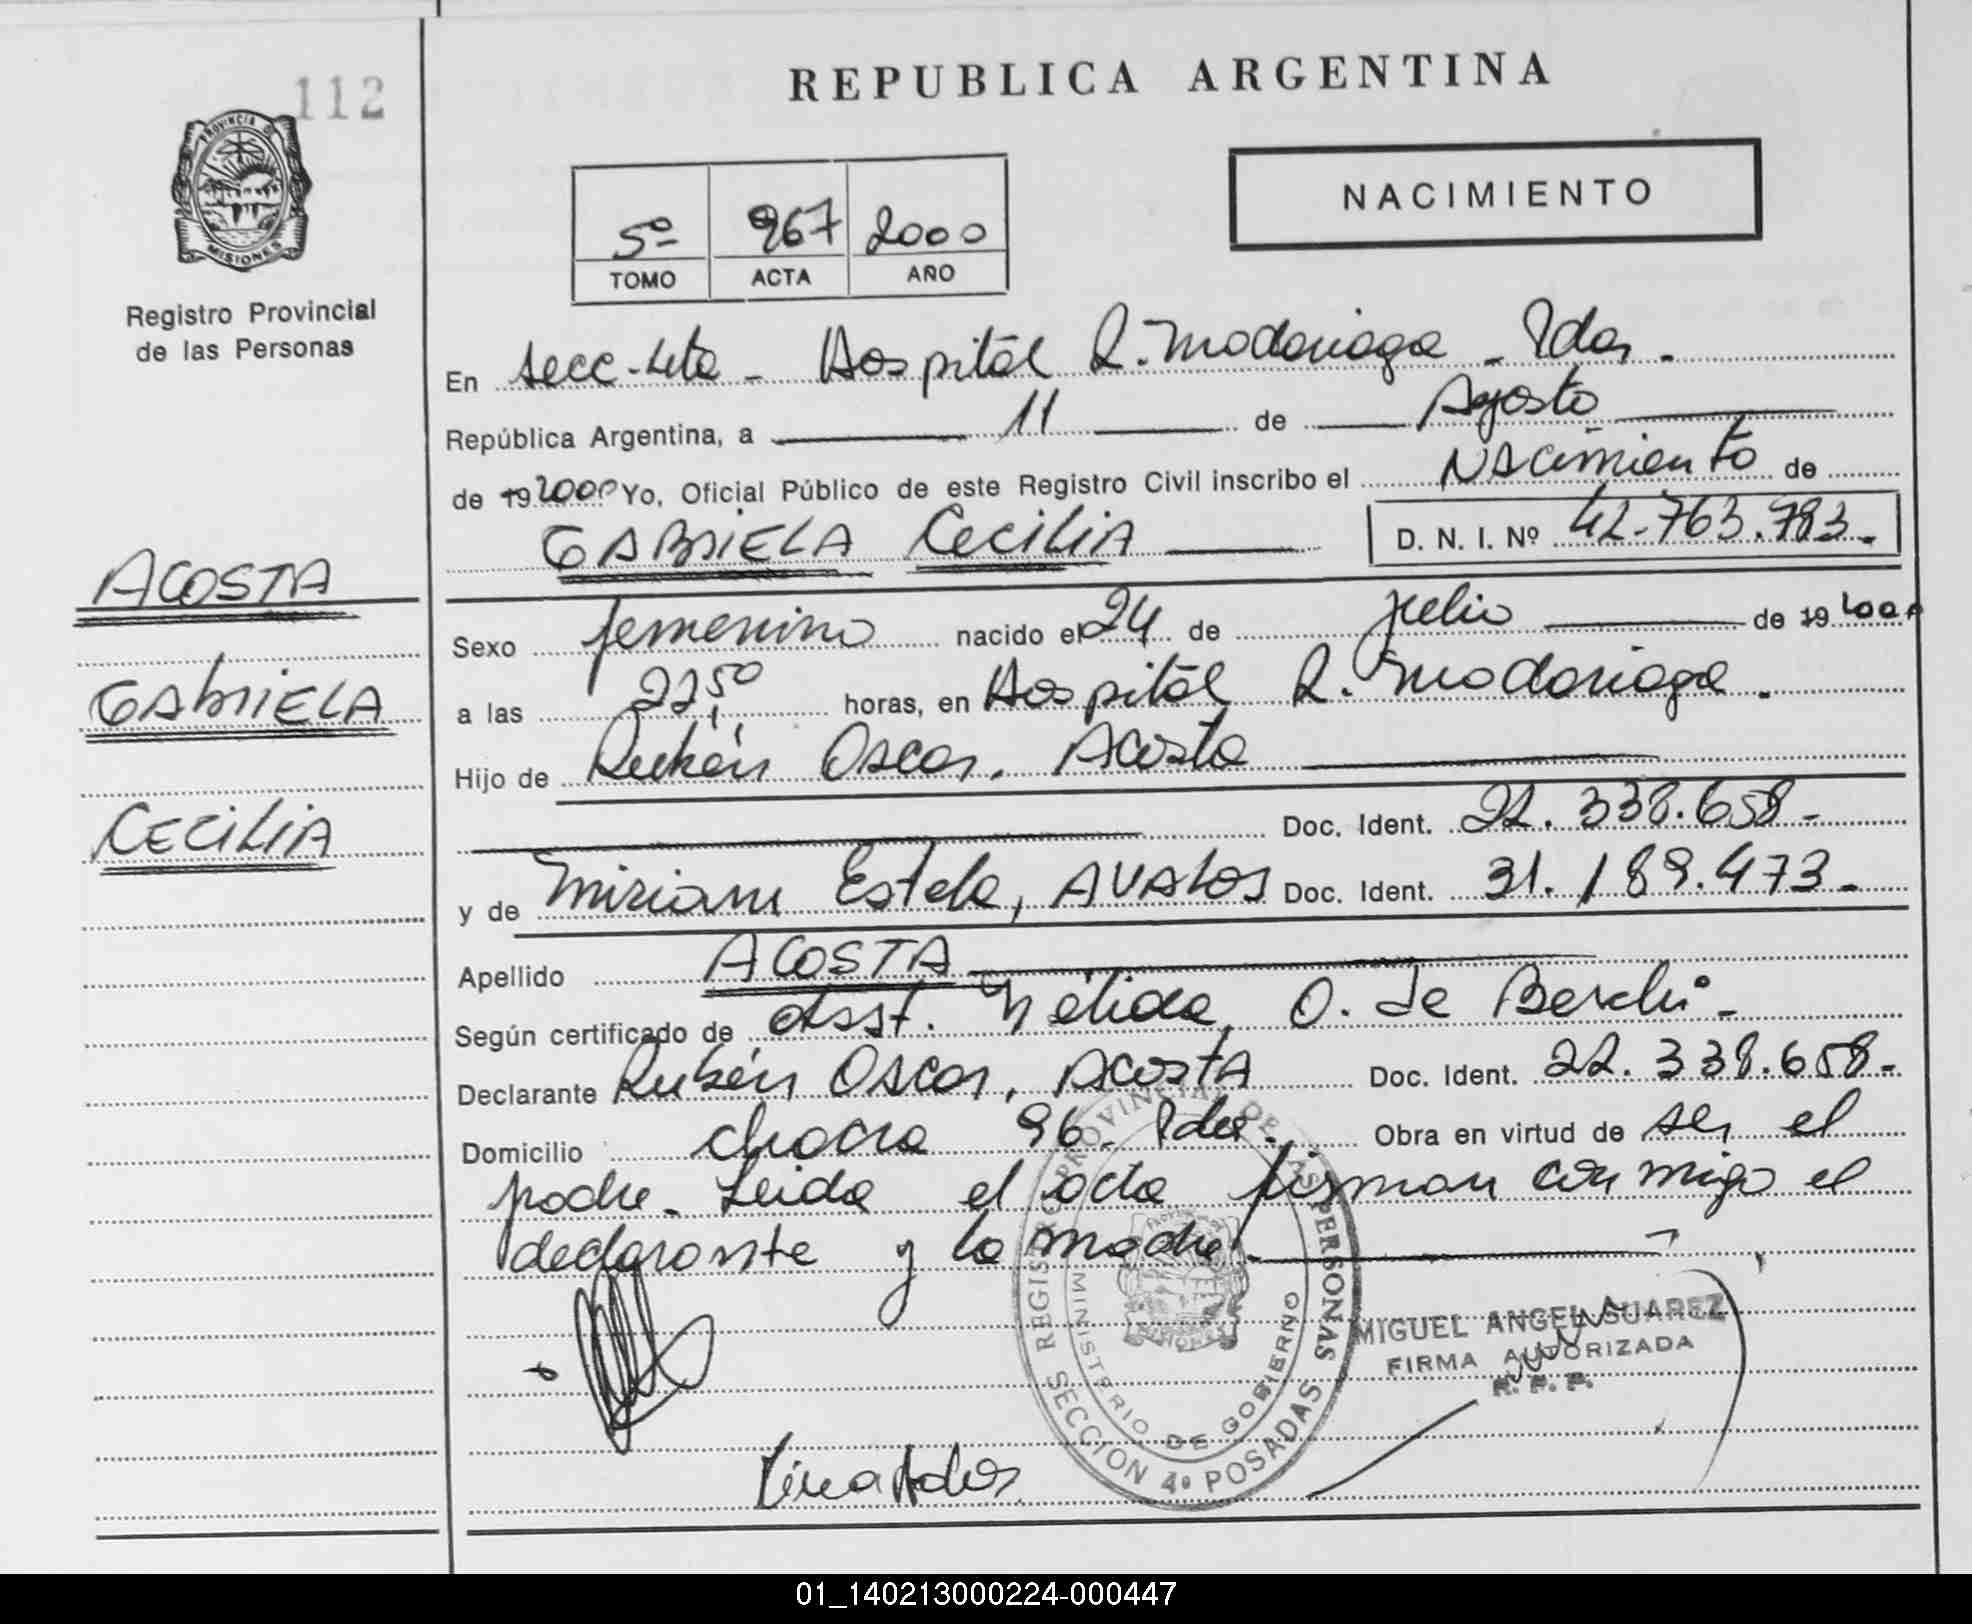 112
REPUBLICA ARGENTINA
PROVINCIA DE
MISIONES
Registro Provincial
de las Personas
NACIMIENTO
5º 967 2000
TOMO ACTA AÑO
En Secc. 4ta - Hospital R. Madariaga - Pdas.
República Argentina, a 11 de Agosto
de 19 2000 Yo, Oficial Público de este Registro Civil inscribo el Nacimiento de
GABRIELA CECILIA D. N. I. Nº 42.763.783.-
ACOSTA
GABRIELA
CECILIA
Sexo femenino nacido el 24 de julio de 19 2000
a las 22,50 horas, en Hospital R. Madariaga.
Hijo de Rubén Oscar, Acosta
Doc. Ident. 22.338.658-
y de Miriam Estela, AVALOS Doc. Ident. 31.189.473-
Apellido ACOSTA
Según certificado de Asst. Nélida O. de
Declarante Rubén Oscar, ACOSTA Doc. Ident. 22.338.658-
Domicilio chacra 96. Pdas. Obra en virtud de ser el
padre. Leida el acta firman conmigo el
declarante y la madre.
REGISTRO PROVINCIAL DE LAS PERSONAS
MINISTERIO DE GOBIERNO
SECCION 4º POSADAS
MIGUEL ANGEL SUAREZ
FIRMA AUTORIZADA
R. P. P.
01_140213000224-000447